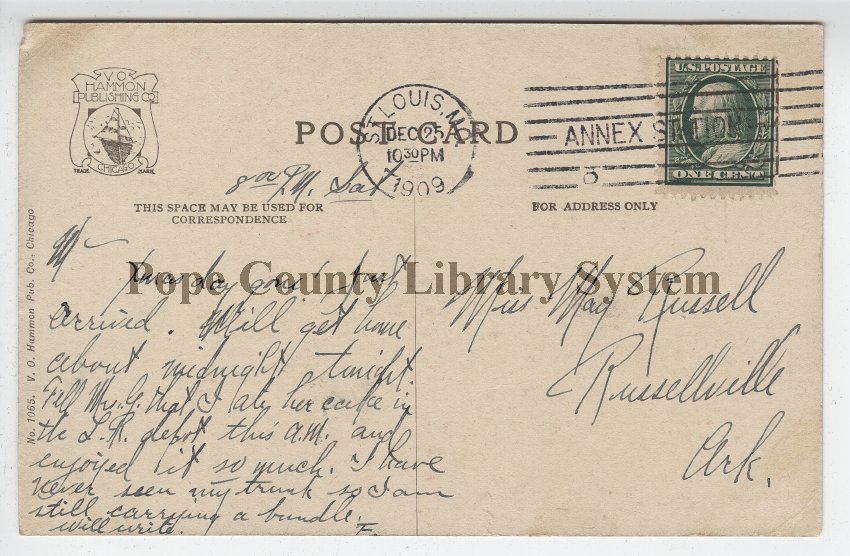 V.O.
HAMMON
PUBLISHING CO.
CHICAGO
TRADE MARK
POST CARD
ST. LOUIS, MO.
DEC 25
10 30 PM
1909
ANNEX STATION
5
U.S. POSTAGE
ONE CENT
8 00 P.M. Sat
THIS SPACE MAY BE USED FOR
CORRESPONDENCE
FOR ADDRESS ONLY
No. 1065. V. O. Hammon Pub. Co., Chicago
Pope County Library System
M—
Xmas day gone! Just
arrived. Will get home
about midnight tonight.
Tell Mrs. G. that I ate her cake in
the L.R. depot this a.m. and
enjoyed it so much. I have
never seen my trunk so I am
still carrying a bundle.
will write. F.
Miss May Russell
Russellville
Ark.